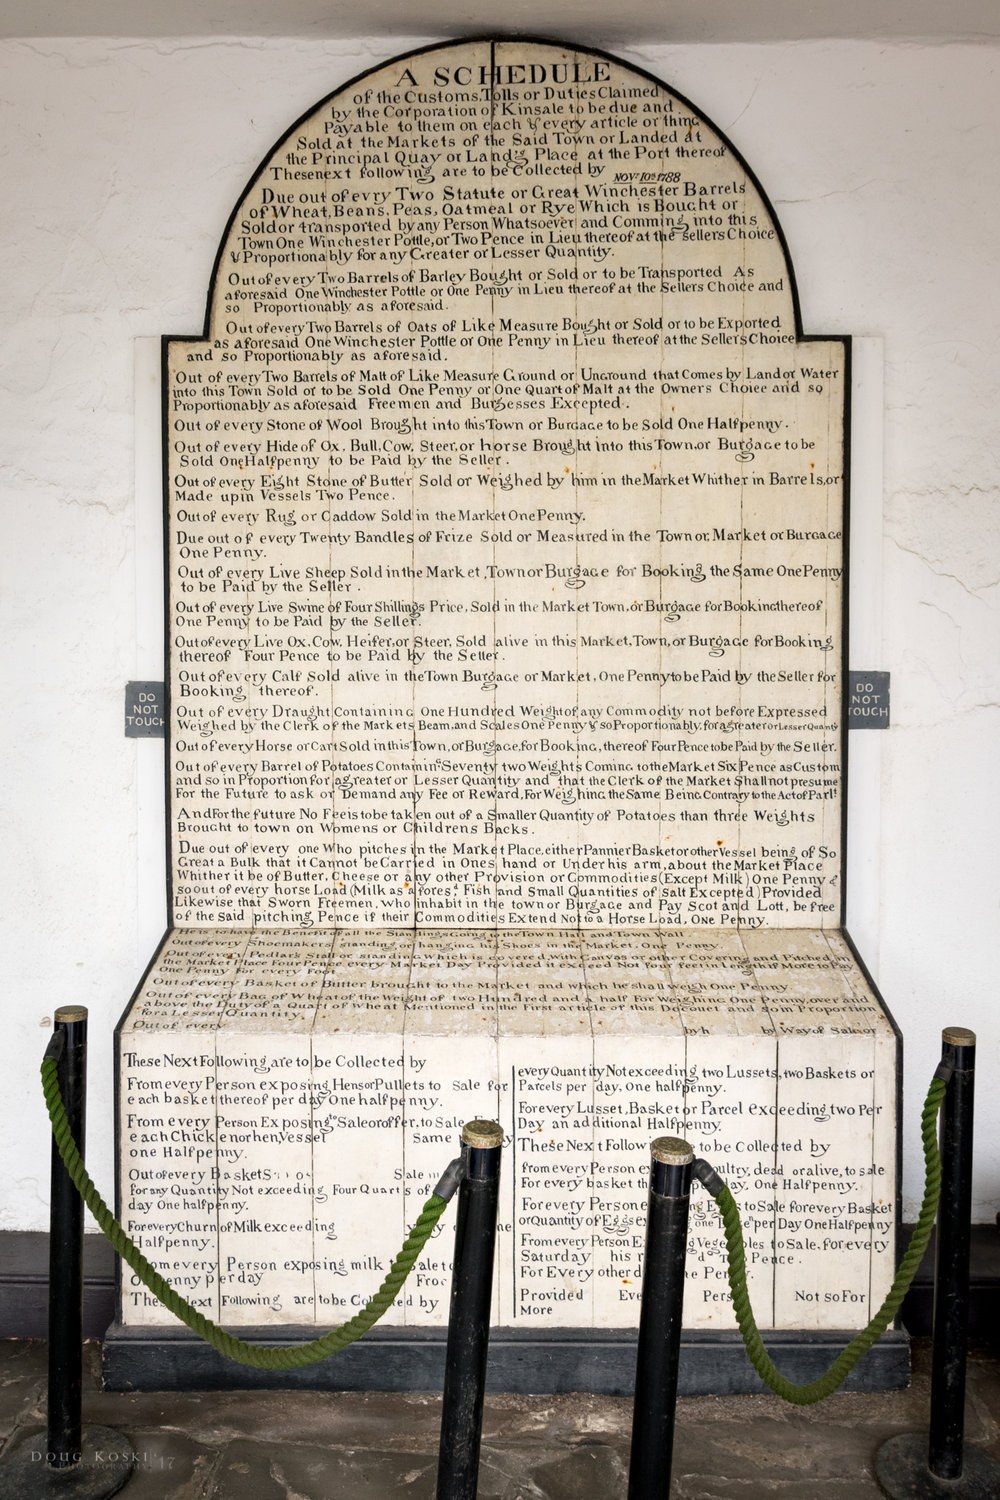 A SCHEDULE
of the Customs, Tolls or Duties Claimed
by the Corporation of Kinsale to be due and
Payable to them on each & every article or thing
Sold at the Markets of the Said Town or Landed at
the Principal Quay or Land.g Place at the Port thereof
These next following are to be Collected by Nov.r 10th 1788
Due out of evry Two Statute or Great Winchester Barrels
of Wheat, Beans, Peas, Oatmeal or Rye Which is Bought or
Sold or transported by any Person Whatsoever and Comming into this
Town One Winchester Pottle, or Two Pence in Lieu thereof at the Sellers Choice
& Proportionably for any Greater or Lesser Quantity.
Out of every Two Barrels of Barley Bought or Sold or to be Transported As
aforesaid One Winchester Pottle or One Penny in Lieu thereof at the Sellers Choice and
so Proportionably as aforesaid.
Out of every Two Barrels of Oats of Like Measure Bought or Sold or to be Exported
as aforesaid One Winchester Pottle or One Penny in Lieu thereof at the Sellers Choice
and so Proportionably as aforesaid.
Out of every Two Barrels of Malt of Like Measure Ground or Unground that Comes by Land or Water
into this Town Sold or to be Sold One Penny or One Quart of Malt at the Owners Choice and so
Proportionably as aforesaid Freemen and Burgesses Excepted.
Out of every Stone of Wool Brought into this Town or Burgage to be Sold One Halfpenny.
Out of every Hide of Ox, Bull, Cow, Steer, or horse Brought into this Town, or Burgage to be
Sold One Halfpenny to be Paid by the Seller.
Out of every Eight Stone of Butter Sold or Weighed by him in the Market Whither in Barrels, or
Made up in Vessels Two Pence.
Out of every Rug or Caddow Sold in the Market One Penny.
Due out of every Twenty Bandles of Frize Sold or Measured in the Town or, Market or Burgage
One Penny.
Out of every Live Sheep Sold in the Market, Town or Burgage for Booking the Same One Penny
to be Paid by the Seller.
Out of every Live Swine of Four Shillings Price, Sold in the Market Town, or Burgage for Booking thereof
One Penny to be Paid by the Seller.
Out of every Live Ox, Cow, Heifer, or Steer, Sold alive in this Market, Town, or Burgage for Booking
thereof Four Pence to be Paid by the Seller.
Out of every Calf Sold alive in the Town Burgage or Market, One Penny to be Paid by the Seller for
Booking thereof.
Out of every Draught Containing One Hundred Weight of any Commodity not before Expressed
Weighed by the Clerk of the Markets Beam, and Scales One Penny & so Proportionably, for a greater or Lesser Quanty
Out of every Horse or Cart Sold in this Town, or Burgage, for Booking, thereof Four Pence to be Paid by the Seller.
Out of every Barrel of Potatoes Contain.g Seventy two Weights Coming to the Market Six Pence as Custom
and so in Proportion for, a greater or Lesser Quantity and that the Clerk of the Market Shall not presume
For the Future to ask or Demand any Fee or Reward, For Weighing the Same Being Contrary to the Act of Parl.t
And For the future No Fee is to be taken out of a Smaller Quantity of Potatoes than three Weights
Brought to town on Womens or Childrens Backs.
Due out of every one Who pitches in the Market Place, either Pannier Basket or other Vessel being of So
Great a Bulk that it Cannot be Carried in Ones hand or Under his arm, about the Market Place
Whither it be of Butter, Cheese or any other Provision or Commodities (Except Milk) One Penny &
so out of every horse Load (Milk as afores.d Fish and Small Quantities of Salt Excepted) Provided
Likewise that Sworn Freemen, who inhabit in the town or Burgage and Pay Scot and Lott, be free
of the Said pitching Pence if their Commodities Extend Not to a Horse Load, One Penny.
He is to have the Benefit of all the Standings Going to the Town Hall and Town Wall
Out of every Shoemakers standing or hanging his Shoes in the Market, One Penny.
Out of every Pedlars Stall or standing Which is covered With Canvas or other Covering and Pitched in
the Market Place Four Pence every Market Day Provided it exceed Not four feet in Length if More to Pay
One Penny for every Foot
Out of every Basket of Butter brought to the Market and which he shall weigh One Penny.
Out of every Bag of Wheat of the Weight of two Hundred and a half For Weighing One Penny, over and
above the Duty of a Quart of Wheat Mentioned in the First article of this Docquet and so in Proportion
for a Lesser Quantity.
Out of every by h by Way of Sale or
These Next Following are to be Collected by
From every Person exposing Hens or Pullets to Sale for
each basket thereof per day One halfpenny.
From every Person Exposing to Sale or offer, to Sale For
each Chicken or hen Vessel Same
one Halfpenny.
Out of every Baskets Sale
for any Quantity Not exceeding Four Quarts of
day One halfpenny.
For every Churn of Milk exceeding
Halfpenny.
Person exposing milk
per day
Next Following are to be by
every Quantity Not exceeding two Lussets, two Baskets or
Parcels per day, One halfpenny.
For every Lusset, Basket or Parcel exceeding two Per
Day an additional Halfpenny.
These Next to be Collected by
from every Person dead or alive, to sale
For every basket day, One Halfpenny.
For every Persone to Sale for every Basket
or Quantity of Eggs per Day One Halfpenny
From every Person to Sale, for every
Saturday his Pence.
For Every other
Provided Not so For
More
DO
NOT
TOUCH
DO
NOT
TOUCH
DOUG KOSKI
PHOTOGRAPHY '17